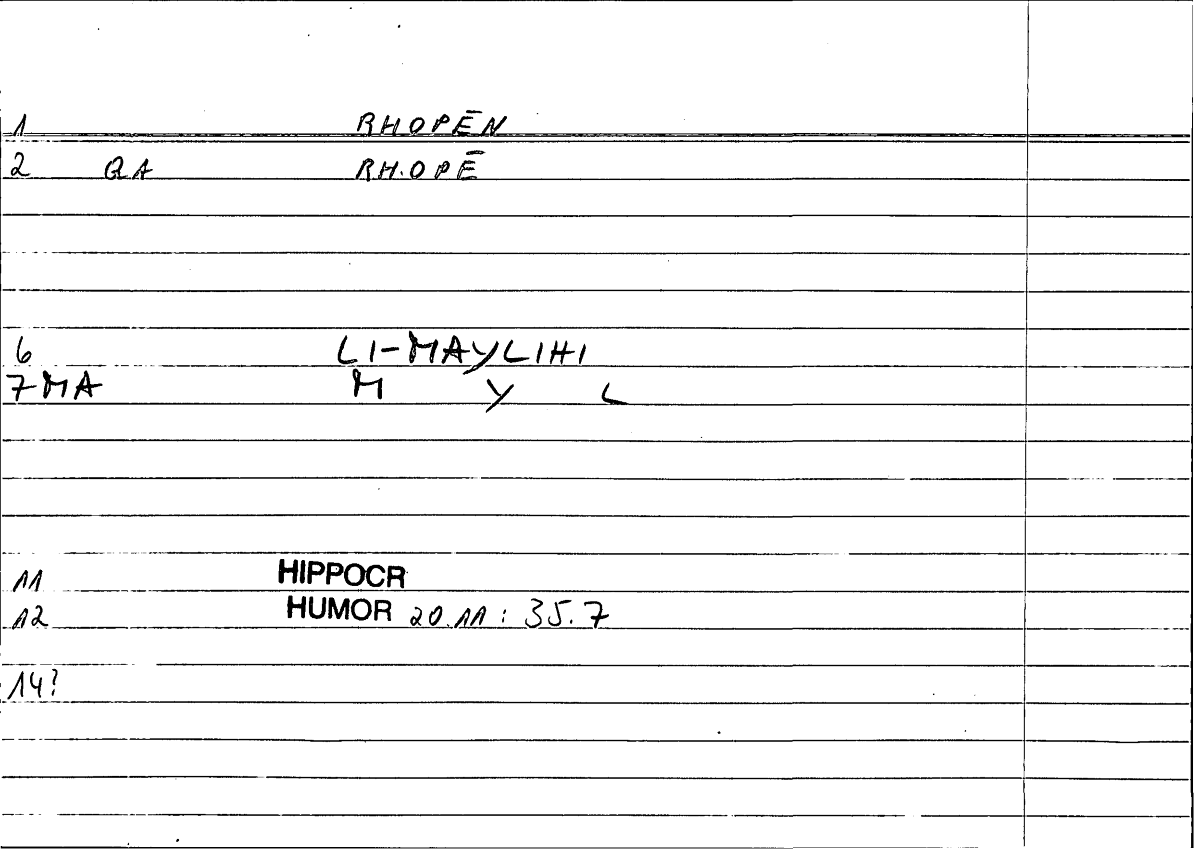 1 RHOPĒN
2 QA RH.OPĒ
6 LI-MAYLIHI
7 MA M Y L
11 HIPPOCR
12 HUMOR 20 11 : 35.7
14?